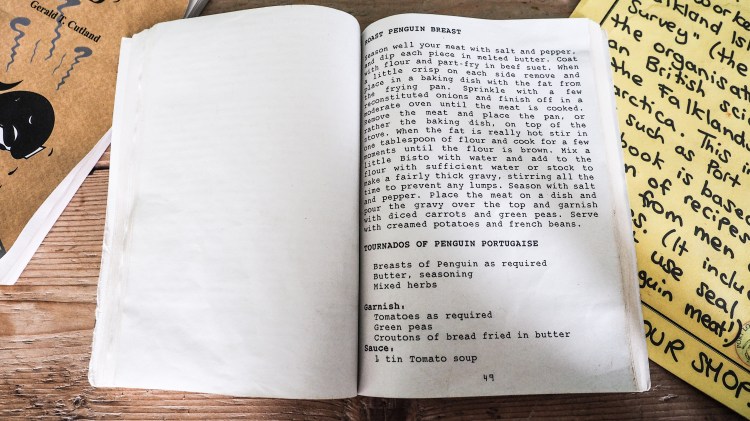 Gerald T. Cutland
ROAST PENGUIN BREAST
Season well your meat with salt and pepper,
and dip each piece in melted butter. Coat
with flour and part-fry in beef suet. When
a little crisp on each side remove and
place in a baking dish with the fat from
the frying pan. Sprinkle with a few
reconstituted onions and finish off in a
moderate oven until the meat is cooked.
Remove the meat and place the pan, or
rather the baking dish, on top of the
stove. When the fat is really hot stir in
one tablespoon of flour and cook for a few
moments until the flour is brown. Mix a
little Bisto with water and add to the
flour with sufficient water or stock to
make a fairly thick gravy, stirring all the
time to prevent any lumps. Season with salt
and pepper. Place the meat on a dish and
pour the gravy over the top and garnish
with diced carrots and green peas. Serve
with creamed potatoes and french beans.
TOURNADOS OF PENGUIN PORTUGAISE
Breasts of Penguin as required
Butter, seasoning
Mixed herbs
Garnish:
Tomatoes as required
Green peas
Croutons of bread fried in butter
Sauce:
1 tin Tomato soup
49
Falkland Is
Survey" (the
the organisat
an British scie
the Falkland
arctica. This
such as Port
book is based
n of recipes
from men
(It inclu
use seal,
guin meat!)
OUR SHOP